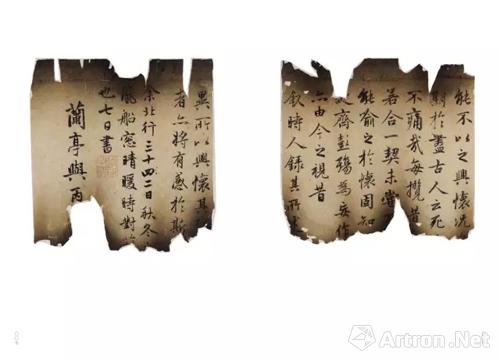 能不以之興懷況
期於盡古人云死
不痛哉每攬昔
若合一契未嘗
能喻之於懷固知
齊彭殤為妄作
亦由今之視昔
敘時人錄其所
異所以興懷其
者亦將有感於斯
余北行三十二日秋冬
風船窓晴暖時對
也七日書
蘭亭與丙
Artron.Net